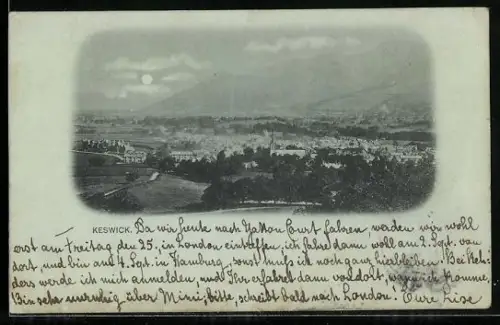 KESWICK. Da wir heute nach Hatton Court fahren, werden wir wohl
erst am Freitag den 25. in London eintreffen, ich fahre dann wohl am 2. Spt. von
dort, und bin am 4. Spt. in Hamburg, sonst muß ich noch ganz hierbleiben. Bei
werde ich mich anmelden, und Ihr erfahrt dann von dort, wann ich komme.
Bin sehr unruhig über Mimi; bitte, schreibt bald nach London. Eure Lise